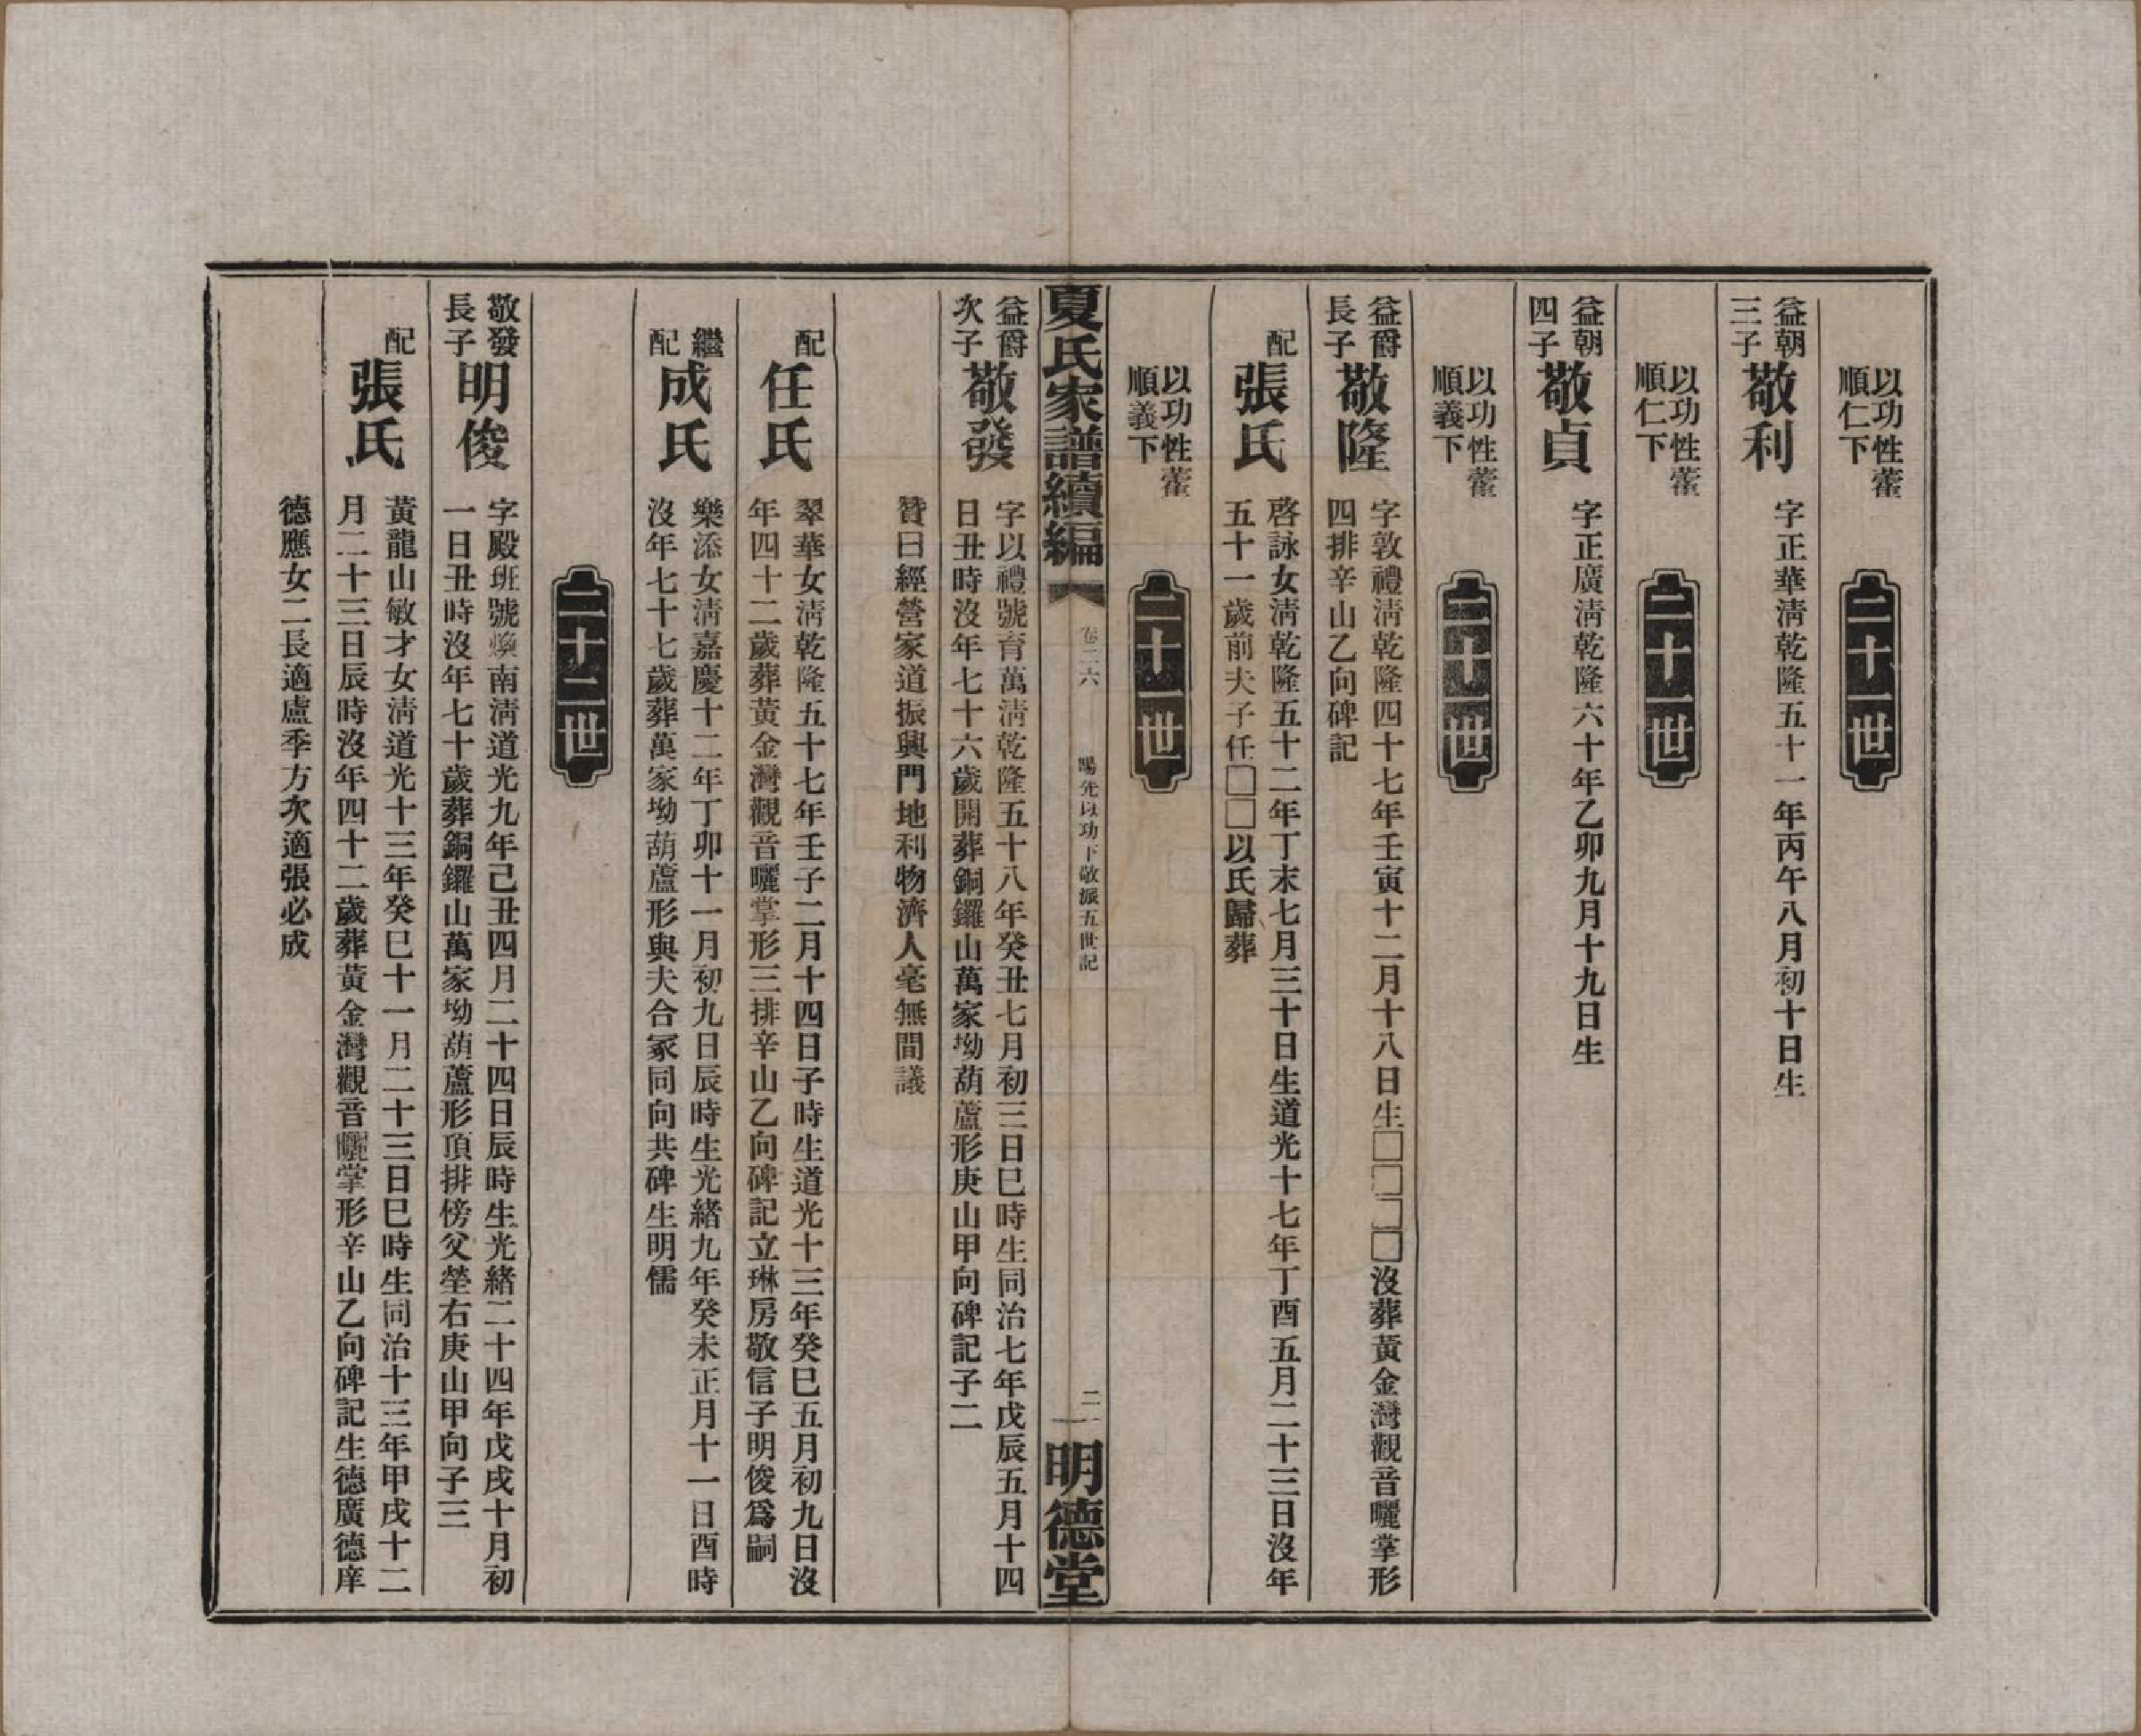 以功性藿
順仁下
二十一世
益朝
三子
敬利
字正華淸乾隆五十一年丙午八月初十日生
以功性藿
順仁下
二十一世
益朝
四子
敬貞
字正廣淸乾隆六十年乙卯九月十九日生
以功性藿
順義下
二十一世
益爵
長子
敬隆
字敦禮淸乾隆四十七年壬寅十二月十八日生□□□□沒葬黃金灣觀音曬掌形
四排辛山乙向碑記
配
張氏
啓詠女淸乾隆五十二年丁未七月三十日生道光十七年丁酉五月二十三日沒年
五十一歲前夫子任□□以氏歸葬
以功性藿
順義下
二十一世
夏氏家譜續編
卷二六
陽先以功下敬派五世記
二
明德堂
益爵
次子
敬發
字以禮號育萬淸乾隆五十八年癸丑七月初三日巳時生同治七年戊辰五月十四
日丑時沒年七十六歲開葬銅鑼山萬家坳葫蘆形庚山甲向碑記子二
贊曰經營家道振興門地利物濟人毫無間議
配
任氏
翠華女淸乾隆五十七年壬子二月十四日子時生道光十三年癸巳五月初九日沒
年四十二歲葬黃金灣觀音曬掌形三排辛山乙向碑記立琳房敬信子明俊爲嗣
繼
配
成氏
樂添女淸嘉慶十二年丁卯十一月初九日辰時生光緒九年癸未正月十一日酉時
沒年七十七歲葬萬家坳葫蘆形與夫合冢同向共碑生明儒
二十二世
敬發
長子
明俊
字殿班號煥南淸道光九年己丑四月二十四日辰時生光緒二十四年戊戌十月初
一日丑時沒年七十歲葬銅鑼山萬家坳葫蘆形頂排傍父塋右庚山甲向子三
配
張氏
黃龍山敏才女淸道光十三年癸巳十一月二十三日巳時生同治十三年甲戌十二
月二十三日辰時沒年四十二歲葬黃金灣觀音曬掌形辛山乙向碑記生德廣德庠
德應女二長適盧季方次適張必成